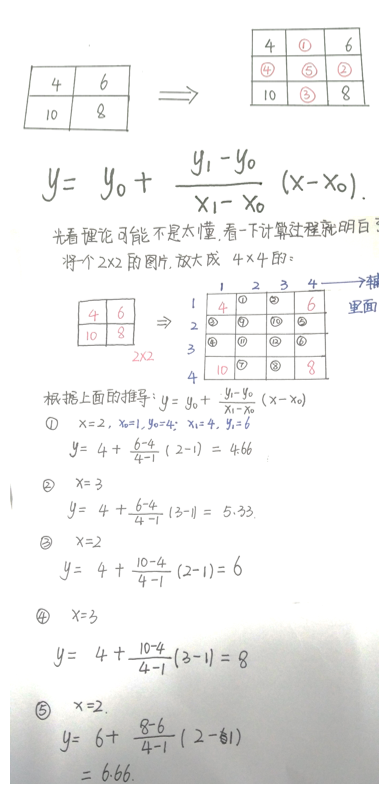 4 6
10 8
4 ① 6
④ ⑤ ②
10 ③ 8
y = y₀ + (y₁ - y₀)/(x₁ - x₀) (x - x₀).
先看理论可能不是太懂，看一下计算过程就明白了
将一个2×2的图片，放大成 4×4的：
4 6
10 8
2×2
1 2 3 4
里面
1 4 ① ② 6
2 ③ ⑨ ⑩ ⑤
3 ④ ⑪ ⑫ ⑥
4 10 ⑦ ⑧ 8
根据上面的推导：y = y₀ + (y₁ - y₀)/(x₁ - x₀) (x - x₀)
① x=2, x₀=1, y₀=4; x₁=4, y₁=6
y = 4 + (6-4)/(4-1) (2-1) = 4.66
② x=3
y = 4 + (6-4)/(4-1) (3-1) = 5.33.
③ x=2
y = 4 + (10-4)/(4-1) (2-1) = 6
④ x=3
y = 4 + (10-4)/(4-1) (3-1) = 8
⑤ x=2.
y = 6 + (8-6)/(4-1) (2-1)
= 6.66.